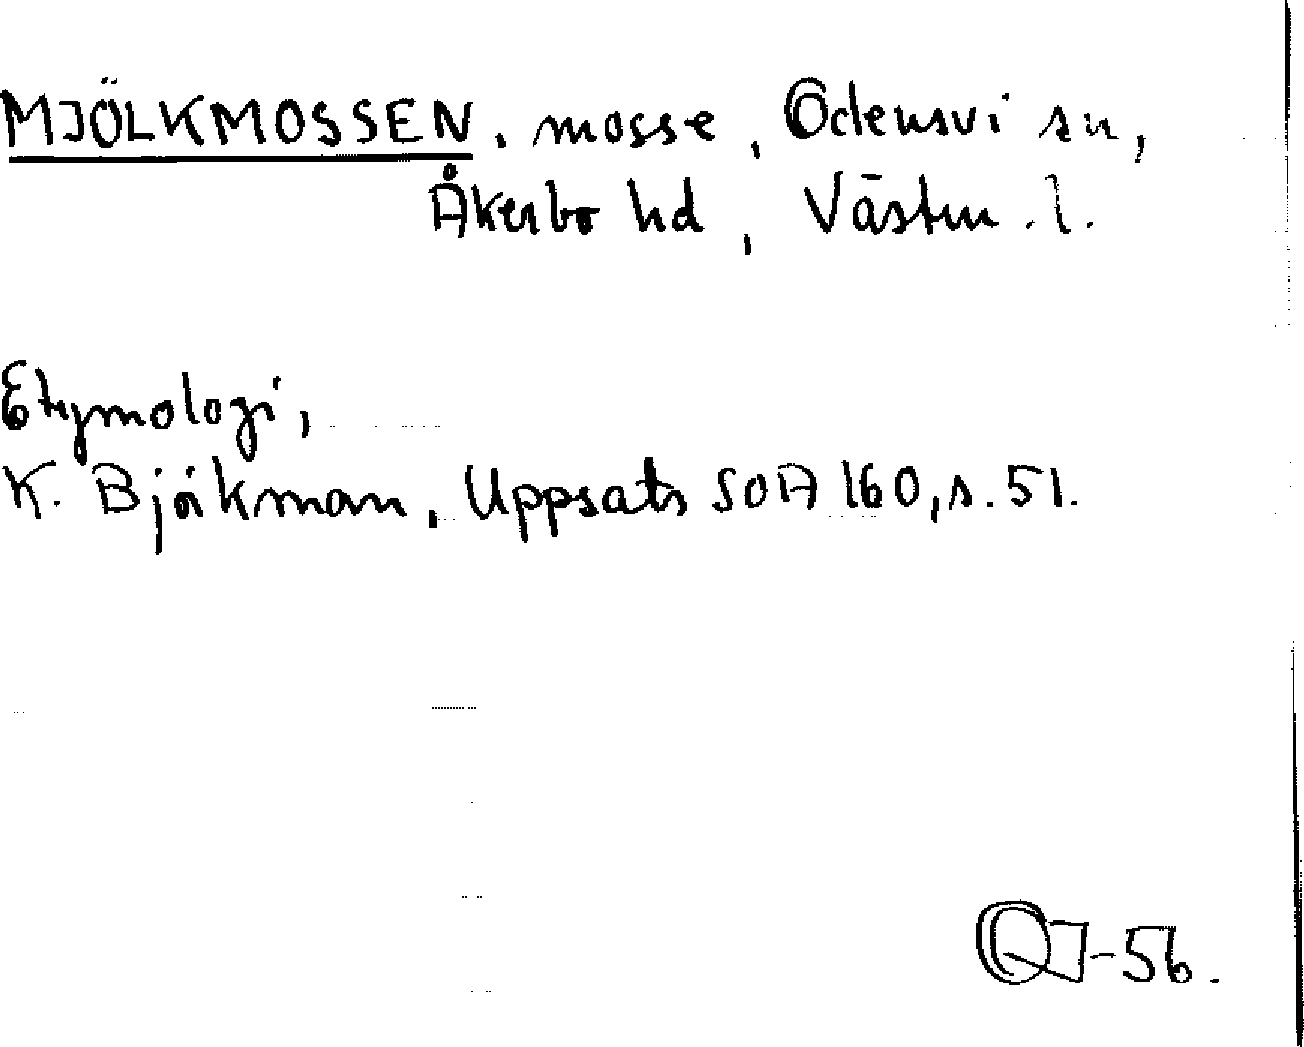 MJÖLKMOSSEN, mosse, Odensvi sn,
Åkerbo hd, Västm. l.
Etymologi,
K. Björkman, Uppsats SOA 160, s. 51.
-56.